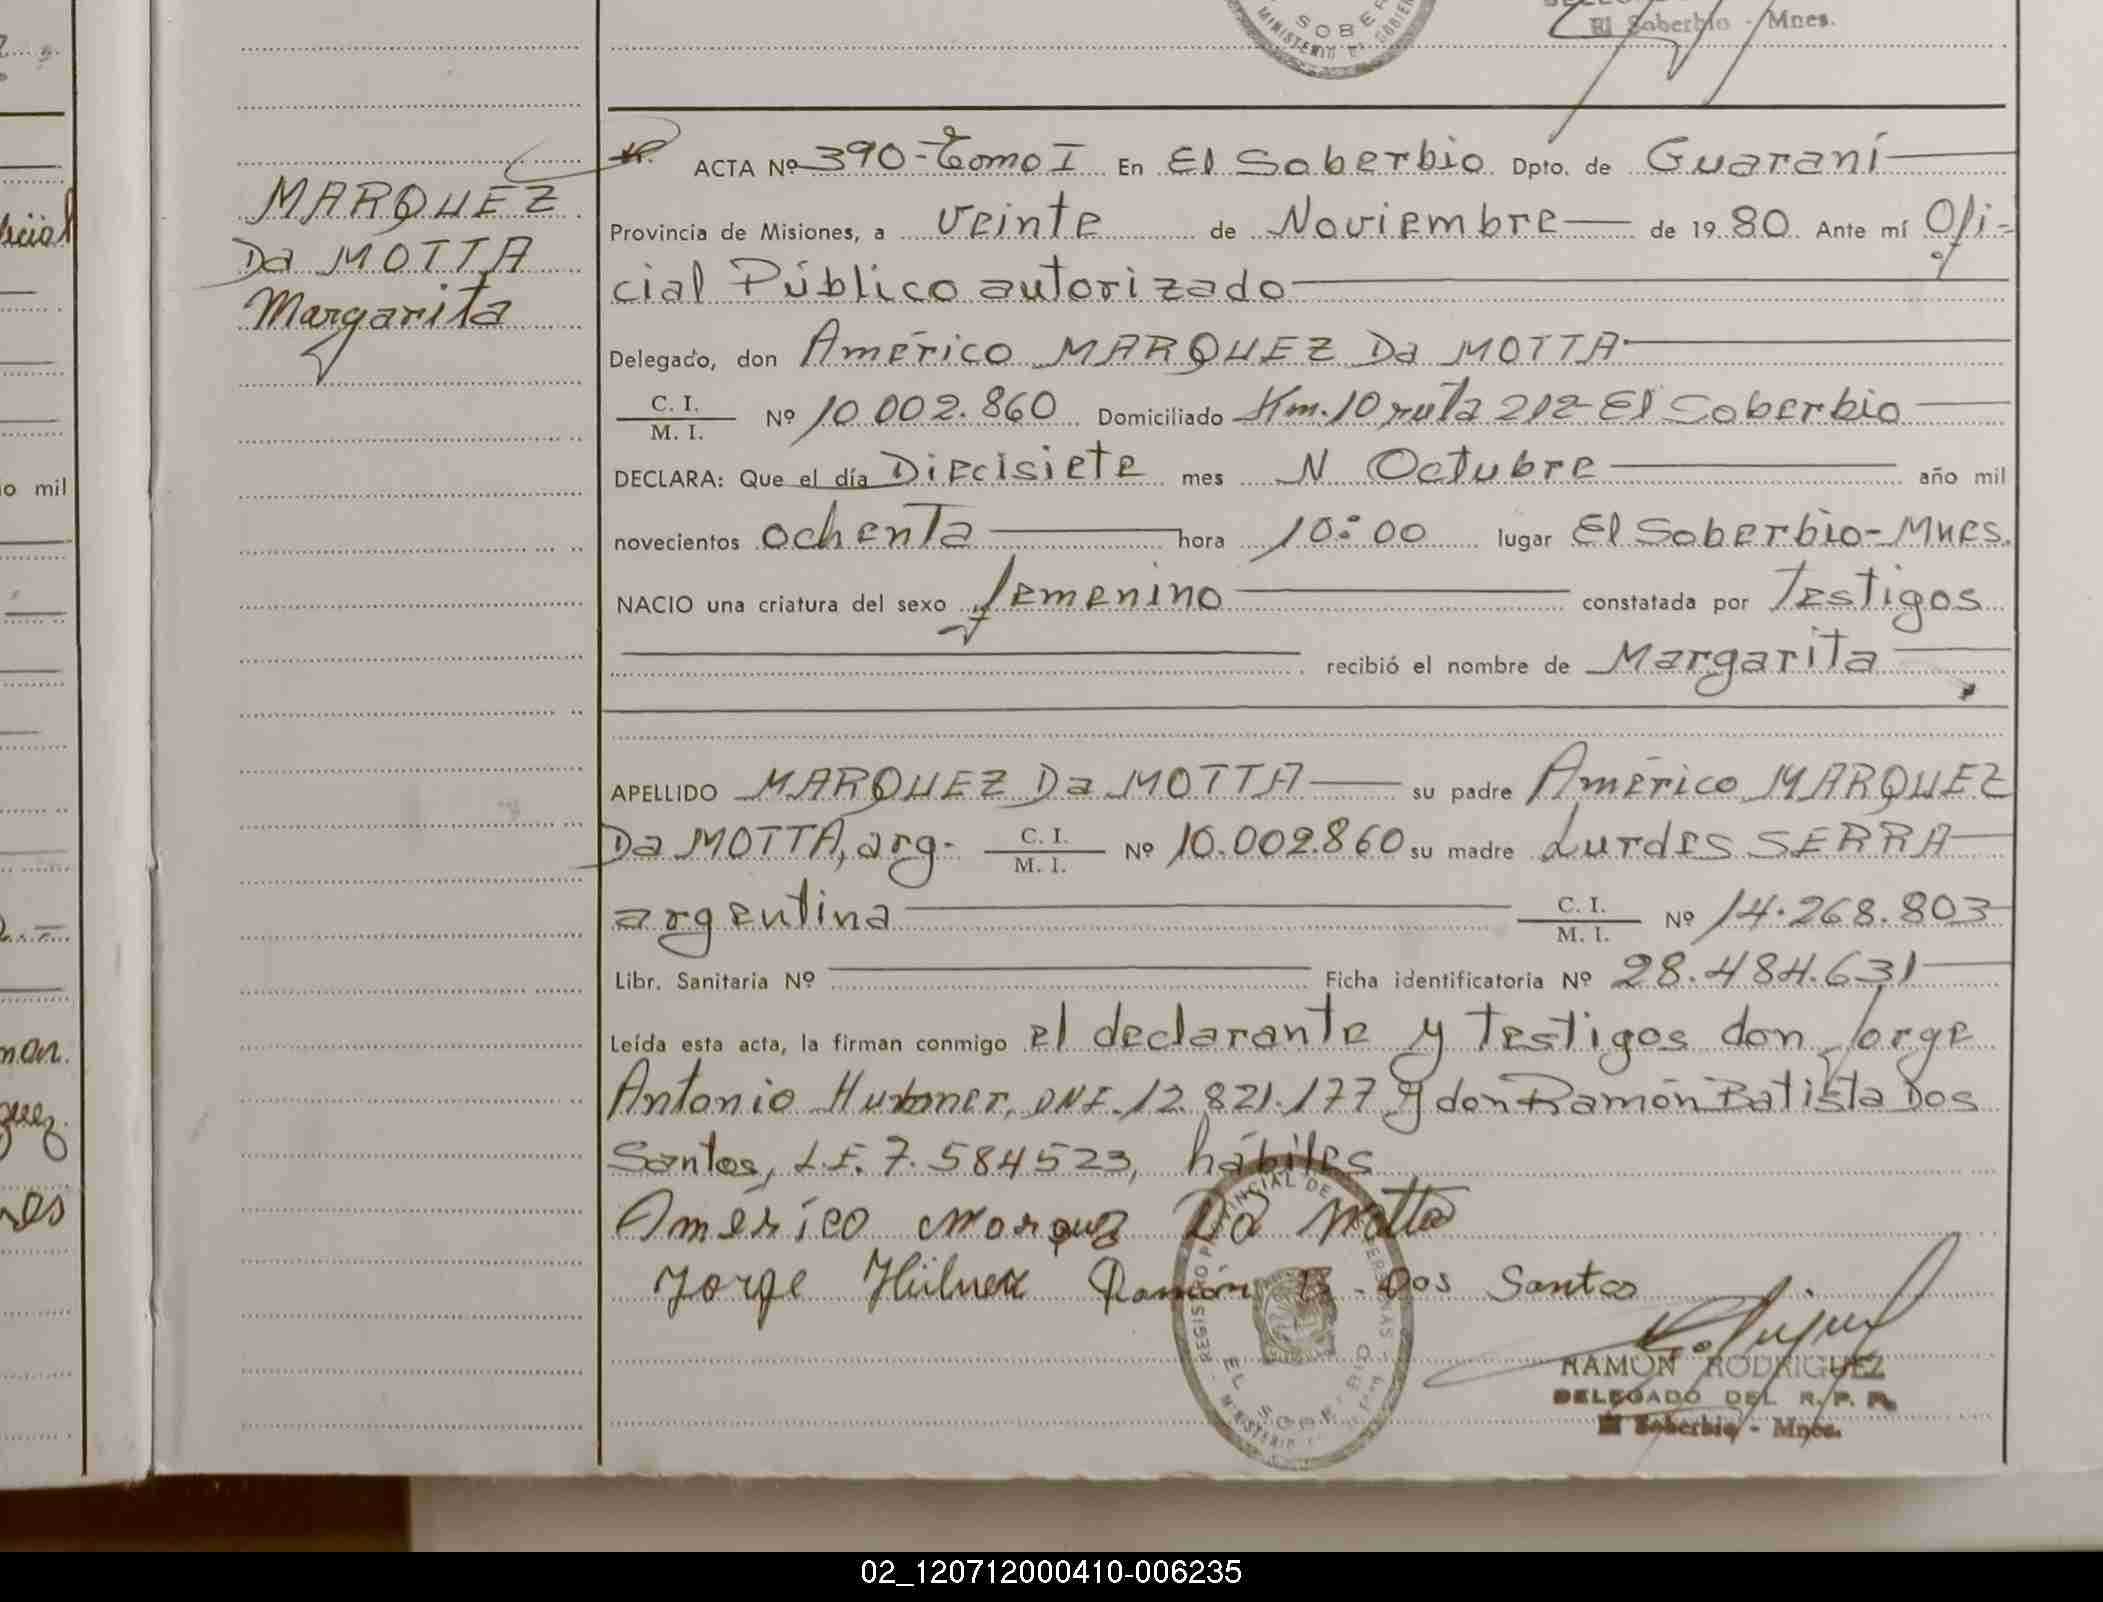 El Soberbio - Mnes.
MARQUEZ
Da MOTTA
Margarita
ACTA Nº 390-Tomo I En El Soberbio Dpto. de Guaraní
Provincia de Misiones, a veinte de Noviembre de 1980. Ante mí Ofi-
cial Público autorizado
Delegado, don Américo MARQUEZ Da MOTTA
C. I.
M. I. Nº 10.002.860 Domiciliado Km. 10 ruta 212-El Soberbio
DECLARA: Que el día Diecisiete mes Octubre año mil
novecientos ochenta hora 10:00 lugar El Soberbio-Mnes.
NACIO una criatura del sexo femenino constatada por Testigos
recibió el nombre de Margarita
APELLIDO MARQUEZ Da MOTTA su padre Américo MARQUEZ
Da MOTTA, arg. C. I. M. I. Nº 10.002.860 su madre Lurdes SERRA
argentina C. I. M. I. Nº 14.268.803
Libr. Sanitaria Nº Ficha identificatoria Nº 28.484.631
Leída esta acta, la firman conmigo el declarante y testigos don Jorge
Antonio DNI. 12.821.177 y don Ramón Batista Dos
Santos, L.E. 7.584523, hábiles
Américo Marquez Da Motta
Jorge Ramón B. Dos Santos
REGISTRO PROVINCIAL DE
RAMON RODRIGUEZ
DELEGADO DEL R. P. P.
El Soberbio - Mnes.
02_120712000410-006235